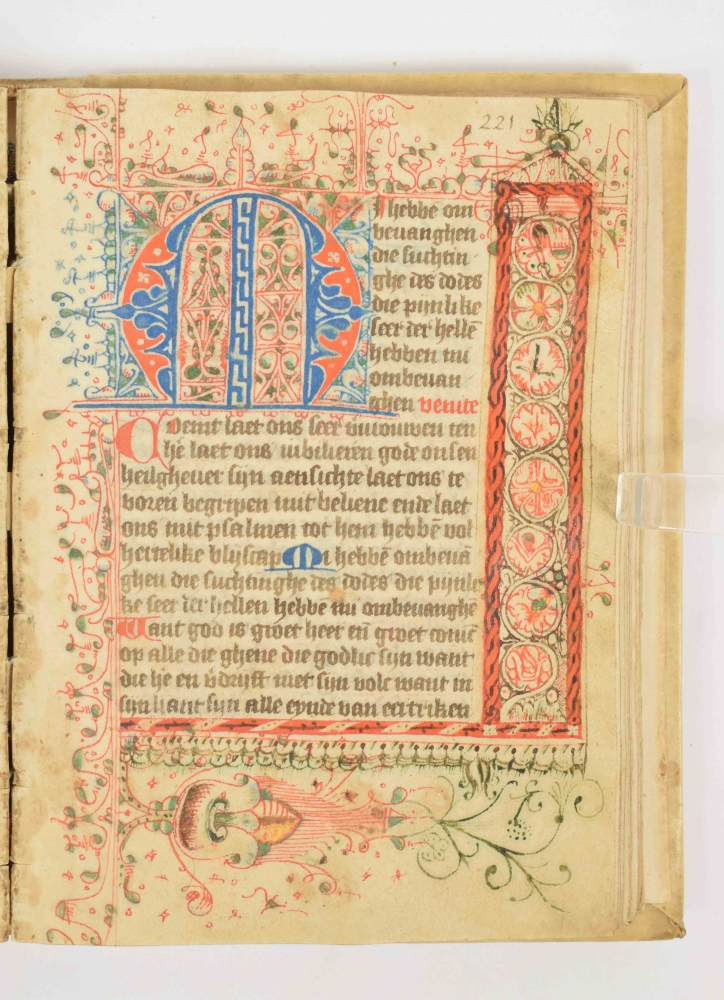 221
Mi hebbe om
beuanghen
die suchtin
ghe des dodes
die pijnlike
seer der hellē
hebben mi
ombeuan
ghen venite
Coemt laet ons seer vrouwen ten
hē laet ons iubilieren gode onsen
heilgheuer sijn aensichte laet ons te
voren begripen mit beliene ende laet
ons mit psalmen tot hem hebbē vol
hertelike blyscap Mi hebbē ombeuā
ghen die suchtinghe des dodes die pijnli
ke seer der hellen hebbe mi ombeuanghē
Want god is groet heer eñ groet coninc
op alle die ghene die godlic sijn want
die hē en v̄drijft niet sijn volc want in
sijn hant sijn alle eynde van eertriken